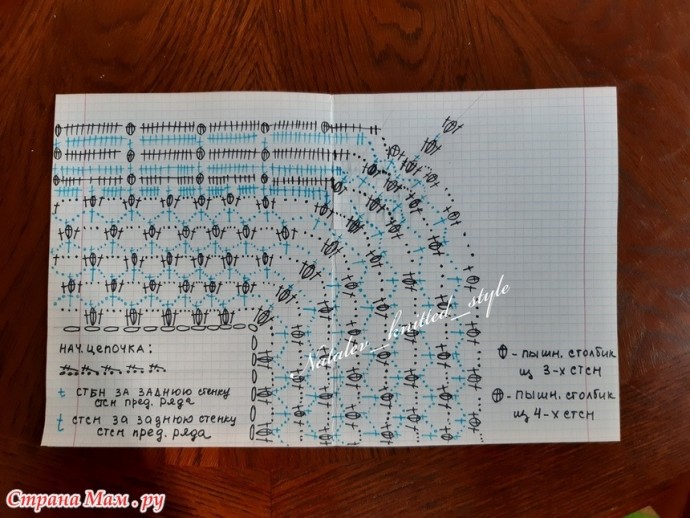 НАЧ. ЦЕПОЧКА:
СТБН ЗА ЗАДНЮЮ СТЕНКУ
СТСН ПРЕД. РЯДА
СТСН ЗА ЗАДНЮЮ СТЕНКУ
СТСН ПРЕД. РЯДА
- ПЫШН. СТОЛБИК
ИЗ 3-Х СТСН
- ПЫШН. СТОЛБИК
ИЗ 4-Х СТСН
Natalev_knitted_style
Страна Мам.ру